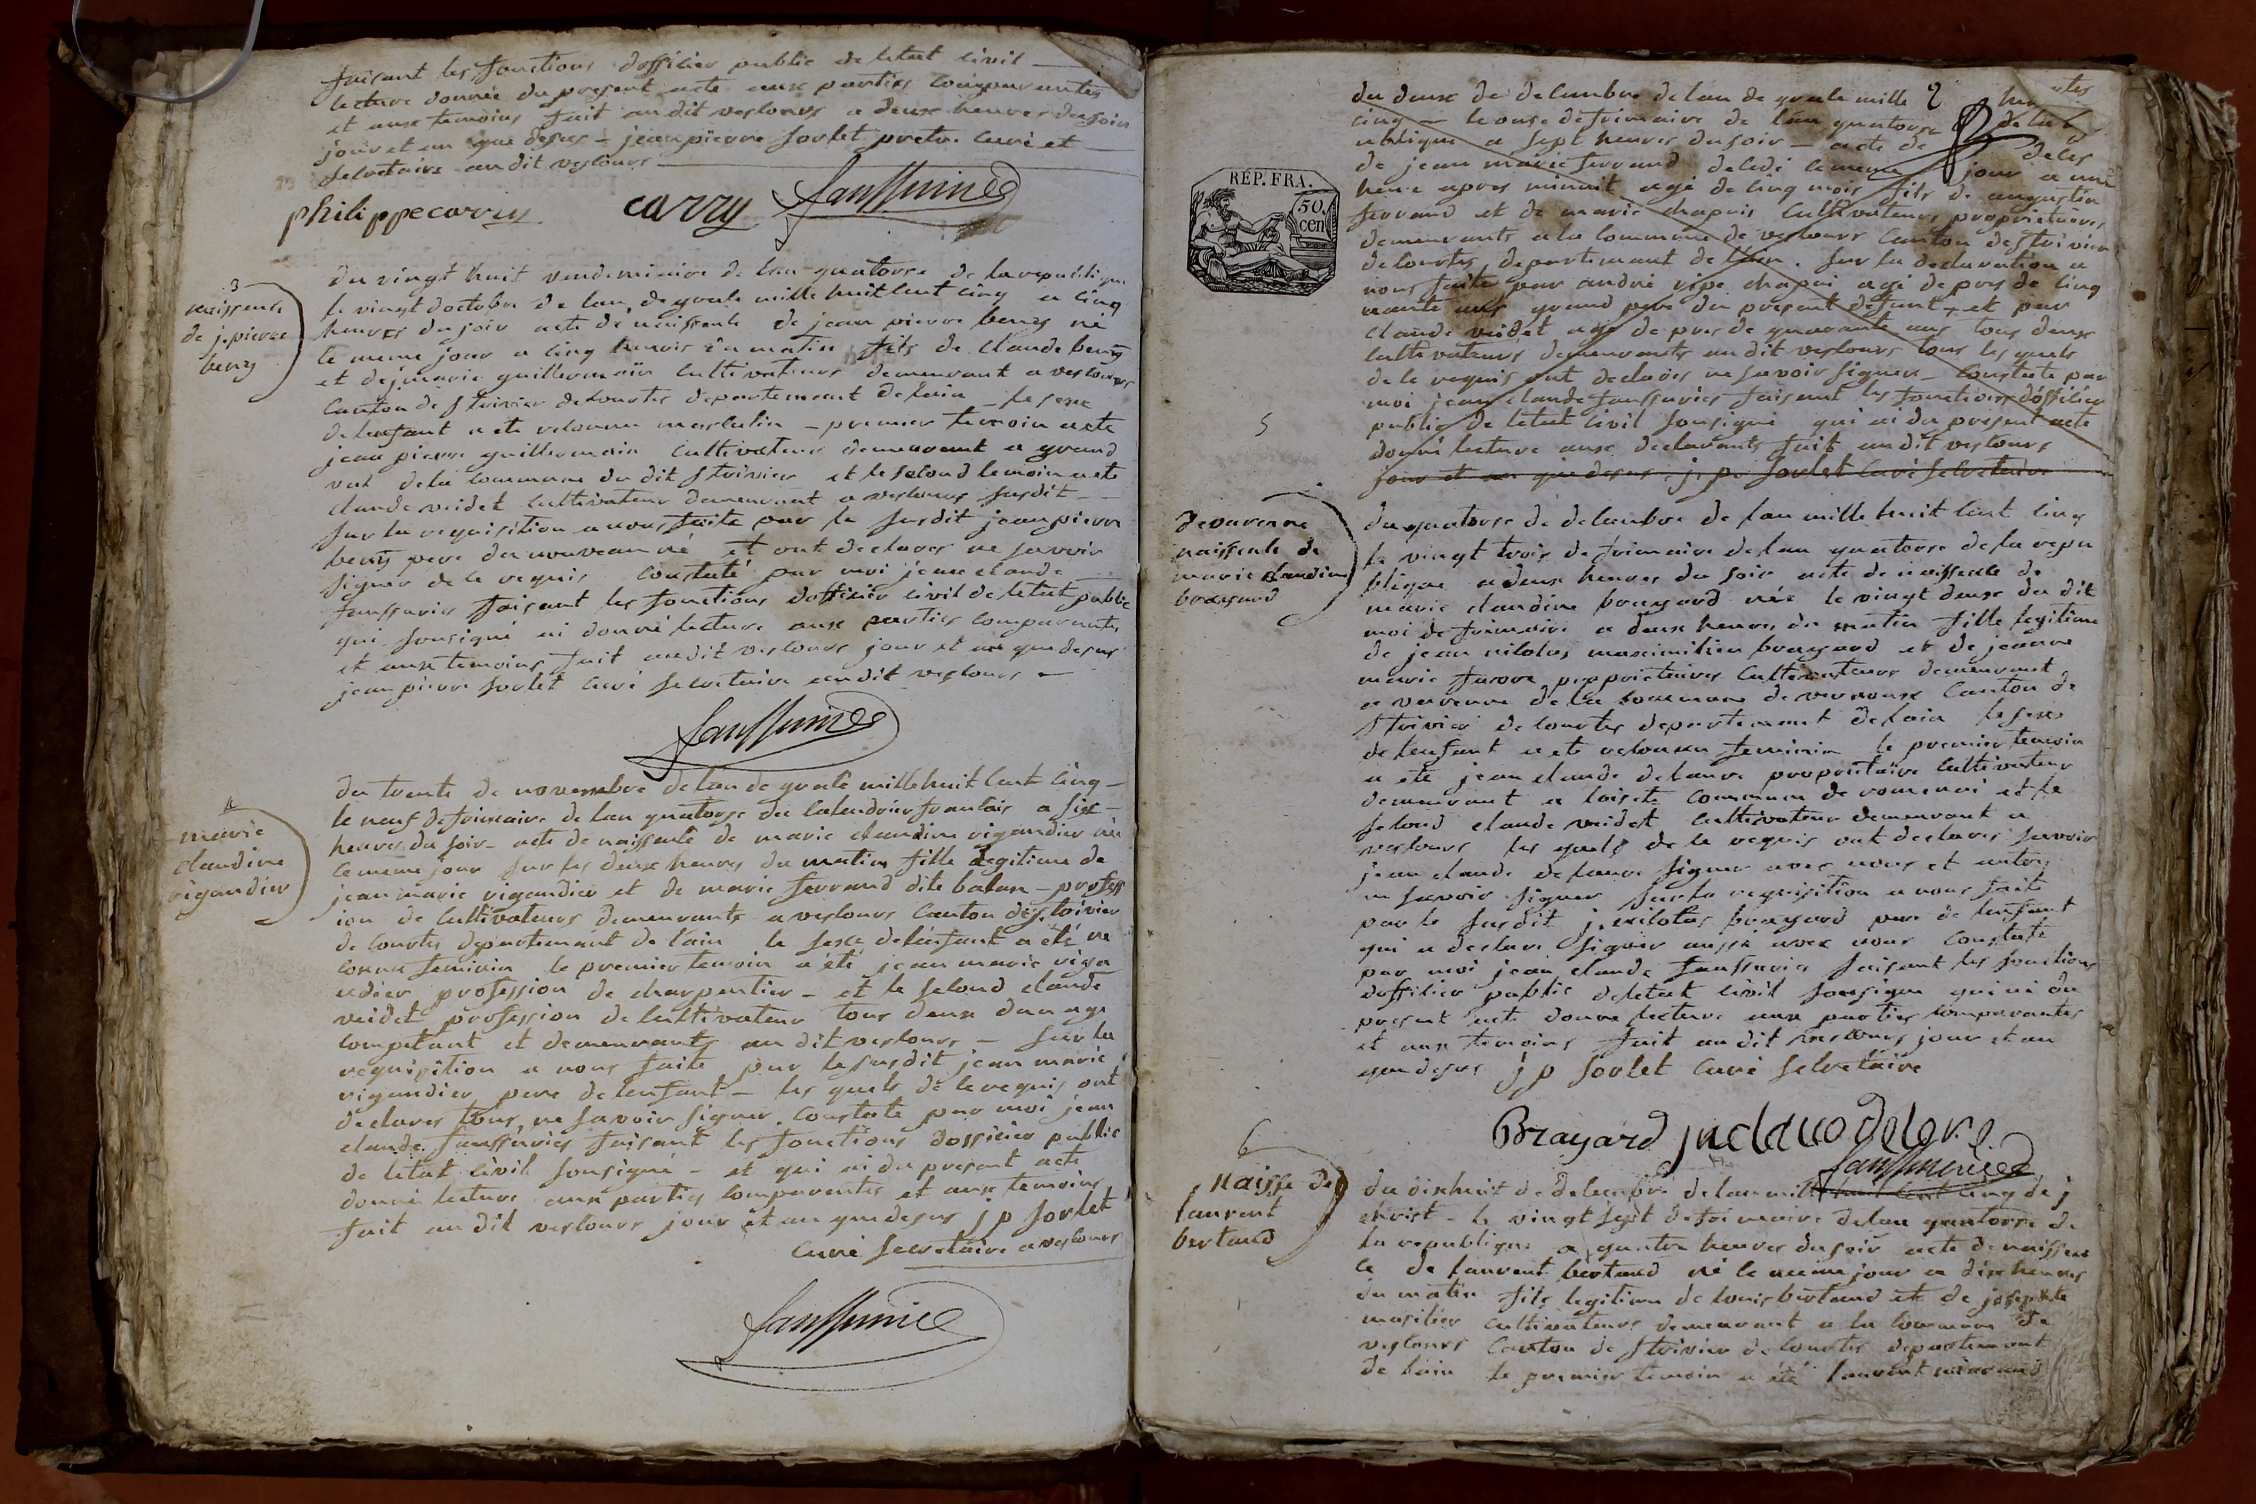 faisant les fonctions dofficier public de letat civil
lecture donnée du present acte aux parties comparantes
et aux temoins fait au dit veslours a deux heures du soir
jour et an que desus - jean pierre sorlet pretre curé et
secretaire au dit veslours
philippe carry carry
3
naissence
de j. pierre
beny
du vingt huit vendemiaire de lan quatorse de la republique
le vingt doctobre de lan de grace mille huit cent cinq a cinq
heures du soir acte de naissence de jean pierre beny né
le meme jour a cinq heures du matin fils de claude beny
et de marie guillermain cultivateurs demeurant a veslours
canton de st trivier de courtes departement de lain le sexe
de lenfant a ete reconnu masculin - premier temoin a ete
jean pierre guillermain cultivateur demeurant a grand
val de la commune du dit st trivier et le second temoin a ete
claude veidet cultivateur demeurant a veslours susdit
sur la requisition a nous faite par le susdit jean pierre
beny pere du nouveau né et ont declares ne savoir
signer de ce requis constaté par moi jean claude
faussurier faisant les fonctions dofficier civil de letat public
qui sousigné ai donné lecture aux parties comparantes
et aux temoins fait au dit veslours jour et an que desus
jean pierre sorlet curé secretaire au dit veslours
4
marie
claudine
rigaudier
du trente de novembre de lan de grace mille huit cent cinq
le neuf de frimaire de lan quatorse du calendrier francais a six
heures du soir acte de naissence de marie claudine rigaudier née
le meme jour sur les deux heures du matin fille legitime de
jean marie rigaudier et de marie ferrand dite balan - profess
ion de cultivateurs demeurants a veslours canton de st trivier
de courtes departement de lain le sexe de lenfant a été re
connu feminin le premier temoin a été jean marie riga
udier profession de charpentier - et le second claude
veidet profession de cultivateur tous deux dun age
competant et demeurants au dit veslours - sur la
requisition a nous faite par le susdit jean marie
rigaudier pere de lenfant - les quels de ce requis ont
declares tous ne savoir signer constate par moi jean
claude faussurier faisant les fonctions dofficier public
de letat civil sousigné - et qui ai du present acte
donné lecture aux parties comparentes et aux temoins
fait au dit veslours jour et an que desus j p sorlet
curé secretaire a veslours
RÉP. FRA.
50
cen
du deux de decembre de lan de grace mille 2
cinq - le onse de frimaire de lan quatorse de la
ublique a sept heures du soir - acte de deces
de jean marie ferrand decedé le meme jour a une
heure apres minuit agé de cinq mois fils de augustin
ferrand et de marie chapuis cultivateurs proprietaires
demeurants a la commune de veslours canton de st trivier
de courtes departement de lain. sur la declaration a
nous faite par andré chapui agé de pres de cinq
uante ans grand pere du present defunt, et par
claude veidet agé de pres de quarante ans tous deux
cultivateurs demeurants au dit veslours tous les quels
de ce requis ont declares ne savoir signer - constate par
moi jean claude faussurier faisant les fonctions dofficier
public de letat civil sousigné qui ai du present acte
donné lecture aux declarants fait au dit veslours
jour et an que desus j. p. sorlet curé secretaire
5
de varenne
naissence de
marie claudine
brayard
du quatorse de decembre de lan mille huit cent cinq
le vingt trois de frimaire de lan quatorse de la repu
blique a deux heures du soir acte de naissence de
marie claudine brayard née le vingt deux du dit
moi de frimaire a deux heures du matin fille legitime
de jean nicolas maximilien brayard et de jeanne
marie proprietaires cultivateurs demeurant
a varenne de la commune de vernoux canton de
st trivier de courtes departement de lain le sexe
de lenfant a ete reconnu feminin le premier temoin
a ete jean claude delaure proprietaire cultivateur
demeurant a commune de romenai et le
second claude veidet cultivateur demeurant a
veslours les quels de ce requis ont declares savoir
jean claude delaure signer avec nous et
ne savoir signer sur la requisition a nous faite
par le susdit j. nicolas brayard pere de lenfant
qui a declare signer aussi avec nous constate
par moi jean claude faussurier faisant les fonctions
dofficier public de letat civil sousigne qui ai du
present acte donne lecture aux parties comparantes
et aux temoins fait au dit veslours jour et an
que desus j p sorlet curé secretaire
Brayard
6
Naisse de
laurent
bertaud
du dixhuit de decembre de lan mille huit cent cinq de j
christ - le vingt sept de frimaire de lan quatorse de
la republique a quatre heures du soir acte de naissen
ce de laurent bertaud né le meme jour a dix heures
du matin fils legitime de louis bertaud et de josephte
cultivateurs demeurant a la commune de
veslours canton de st trivier de courtes departement
de lain le premier temoin a été laurent